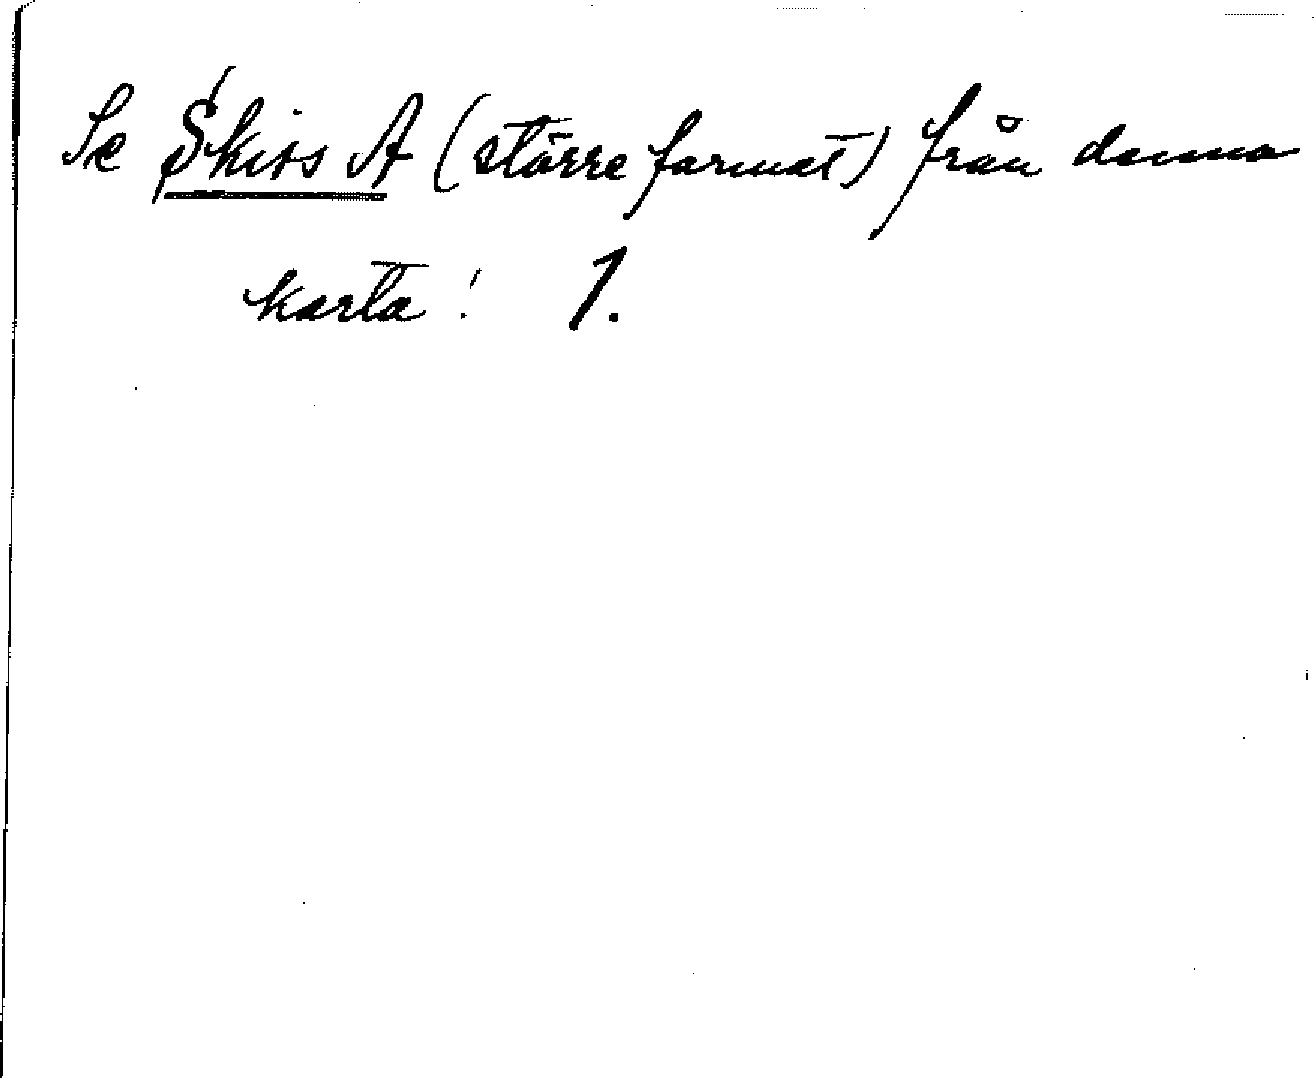 Se Skiss A (större format) från denna
karta! 1.